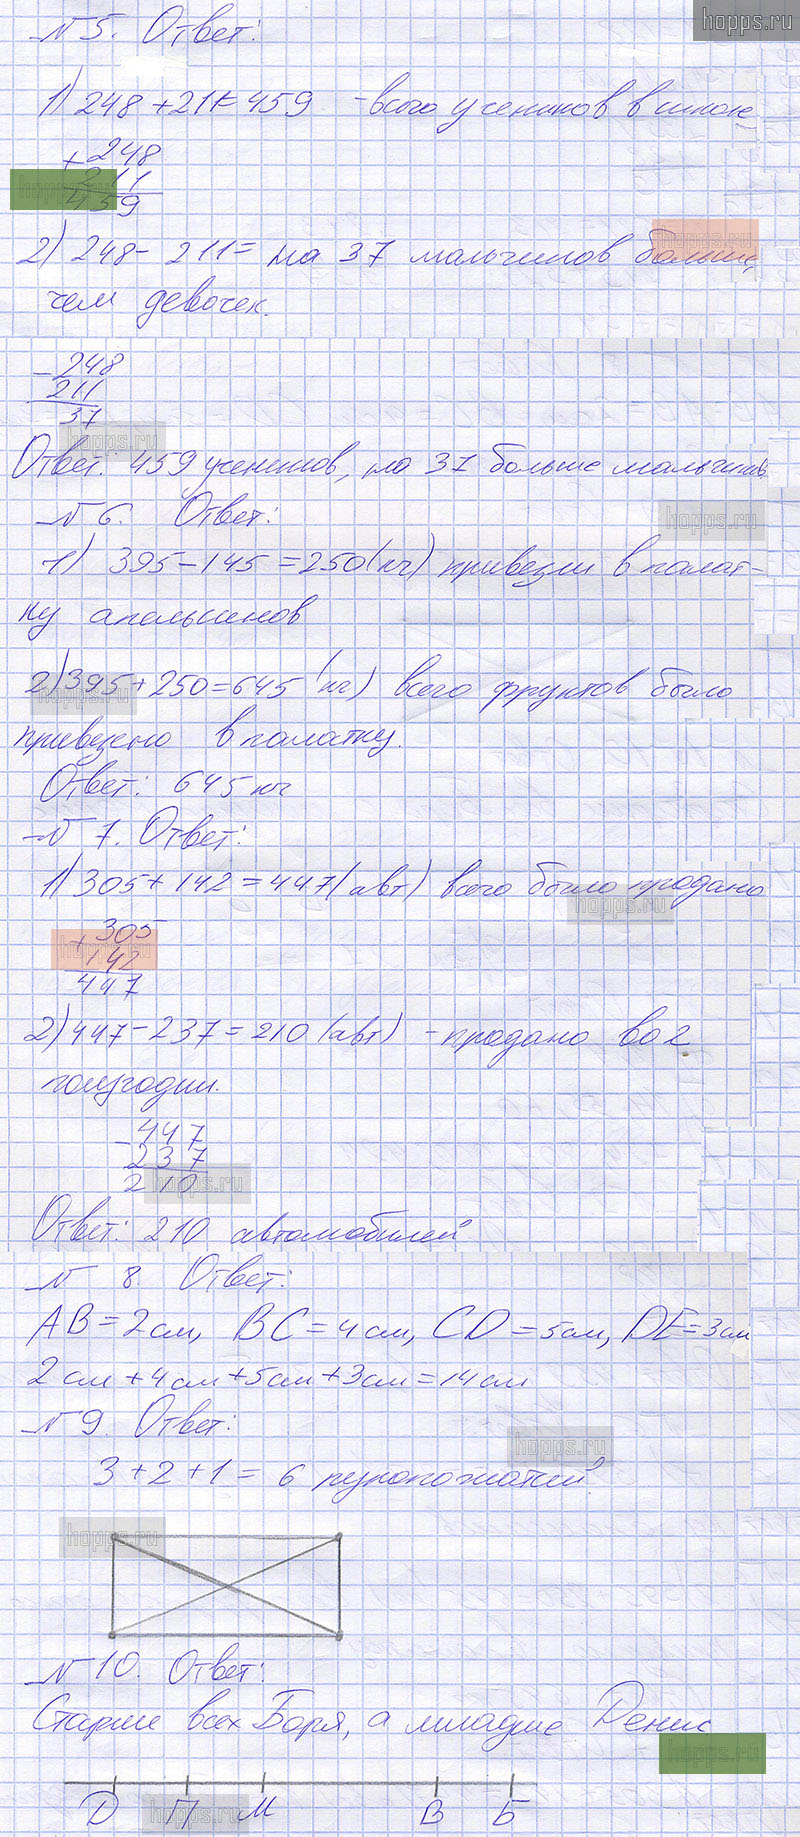 hopps.ru
№ 5. Ответ:
1) 248 + 211 = 459 - всего учеников в школе
+ 248
211
459
2) 248 - 211 = на 37 мальчиков больше,
чем девочек.
- 248
211
37
Ответ: 459 учеников, на 37 больше мальчиков
№ 6. Ответ:
1) 395 - 145 = 250 (кг) привезли в палат-
ку апельсинов
2) 395 + 250 = 645 (кг) всего фруктов было
привезено в палатку.
Ответ: 645 кг
№ 7. Ответ:
1) 305 + 142 = 447 (авт) всего было продано
+ 305
142
447
2) 447 - 237 = 210 (авт) - продано во 2
полугодии.
- 447
237
210
Ответ: 210 автомобилей
№ 8 Ответ:
AB = 2 см, BC = 4 см, CD = 5 см, DE = 3 см
2 см + 4 см + 5 см + 3 см = 14 см
№ 9. Ответ:
3 + 2 + 1 = 6 рукопожатий
№ 10. Ответ:
Старше всех Боря, а младше Денис
Д П М В Б